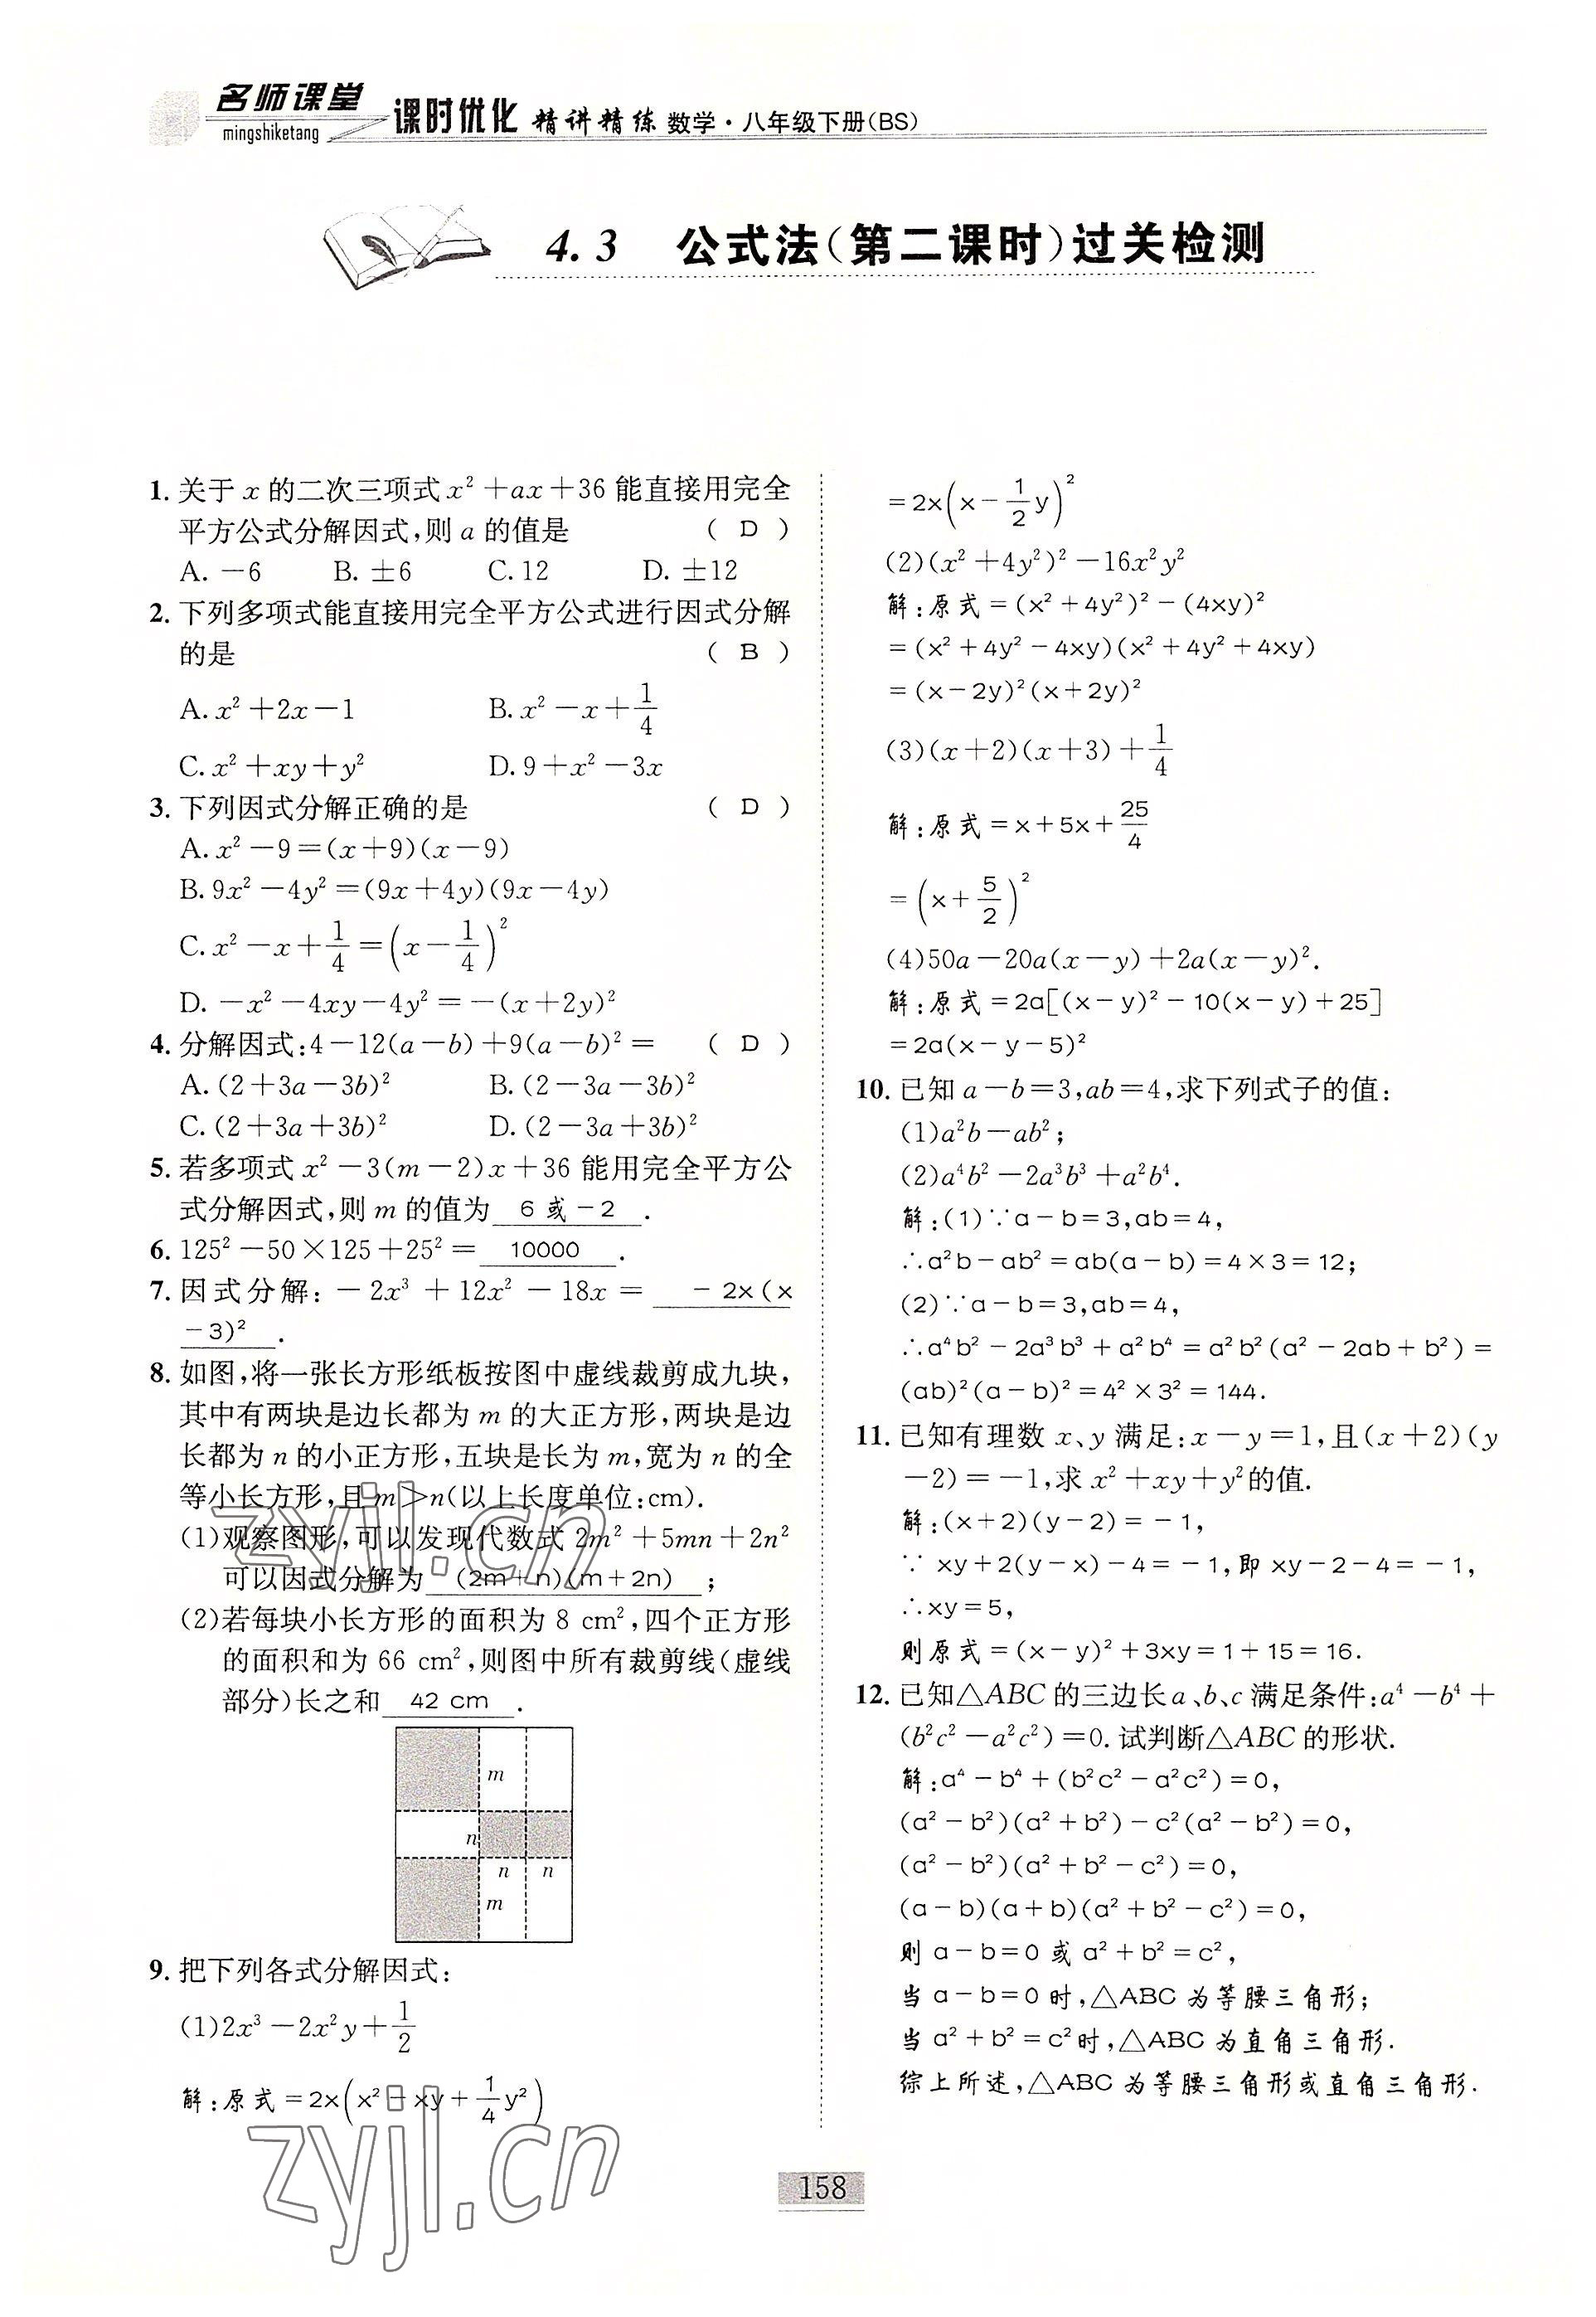 名师课堂
mingshiketang
课时优化 精讲精练 数学·八年级下册(BS)
4.3 公式法(第二课时)过关检测
1. 关于 x 的二次三项式 x²+ax+36 能直接用完全
平方公式分解因式,则 a 的值是 ( D )
A. －6 B. ±6 C. 12 D. ±12
2. 下列多项式能直接用完全平方公式进行因式分解
的是 ( B )
A. x²+2x－1 B. x²－x+1/4
C. x²+xy+y² D. 9+x²－3x
3. 下列因式分解正确的是 ( D )
A. x²－9=(x+9)(x－9)
B. 9x²－4y²=(9x+4y)(9x－4y)
C. x²－x+1/4=(x－1/4)²
D. －x²－4xy－4y²=－(x+2y)²
4. 分解因式:4－12(a－b)+9(a－b)²= ( D )
A. (2+3a－3b)² B. (2－3a－3b)²
C. (2+3a+3b)² D. (2－3a+3b)²
5. 若多项式 x²－3(m－2)x+36 能用完全平方公
式分解因式,则 m 的值为 6 或－2 .
6. 125²－50×125+25²= 10000 .
7. 因式分解: －2x³+12x²－18x= －2x(x
－3)² .
8. 如图,将一张长方形纸板按图中虚线裁剪成九块,
其中有两块是边长都为 m 的大正方形,两块是边
长都为 n 的小正方形,五块是长为 m,宽为 n 的全
等小长方形,且 m>n(以上长度单位:cm).
(1)观察图形,可以发现代数式 2m²+5mn+2n²
可以因式分解为 (2m+n)(m+2n) ;
(2)若每块小长方形的面积为 8 cm²,四个正方形
的面积和为 66 cm²,则图中所有裁剪线(虚线
部分)长之和 42 cm .
m
n
n n
m
9. 把下列各式分解因式:
(1)2x³－2x²y+1/2
解:原式=2x(x²－xy+1/4y²)
=2x(x－1/2y)²
(2)(x²+4y²)²－16x²y²
解:原式=(x²+4y²)²－(4xy)²
=(x²+4y²－4xy)(x²+4y²+4xy)
=(x－2y)²(x+2y)²
(3)(x+2)(x+3)+1/4
解:原式=x+5x+25/4
=(x+5/2)²
(4)50a－20a(x－y)+2a(x－y)².
解:原式=2a[(x－y)²－10(x－y)+25]
=2a(x－y－5)²
10. 已知 a－b=3,ab=4,求下列式子的值:
(1)a²b－ab²;
(2)a⁴b²－2a³b³+a²b⁴.
解:(1)∵a－b=3,ab=4,
∴a²b－ab²=ab(a－b)=4×3=12;
(2)∵a－b=3,ab=4,
∴a⁴b²－2a³b³+a²b⁴=a²b²(a²－2ab+b²)=
(ab)²(a－b)²=4²×3²=144.
11. 已知有理数 x、y 满足:x－y=1,且(x+2)(y
－2)=－1,求 x²+xy+y²的值.
解:(x+2)(y－2)=－1,
∵ xy+2(y－x)－4=－1,即 xy－2－4=－1,
∴xy=5,
则原式=(x－y)²+3xy=1+15=16.
12. 已知△ABC 的三边长 a、b、c 满足条件:a⁴－b⁴+
(b²c²－a²c²)=0. 试判断△ABC 的形状.
解:a⁴－b⁴+(b²c²－a²c²)=0,
(a²－b²)(a²+b²)－c²(a²－b²)=0,
(a²－b²)(a²+b²－c²)=0,
(a－b)(a+b)(a²+b²－c²)=0,
则 a－b=0 或 a²+b²=c²,
当 a－b=0 时,△ABC 为等腰三角形;
当 a²+b²=c²时,△ABC 为直角三角形.
综上所述,△ABC 为等腰三角形或直角三角形.
158
zyjl.cn
zyjl.cn